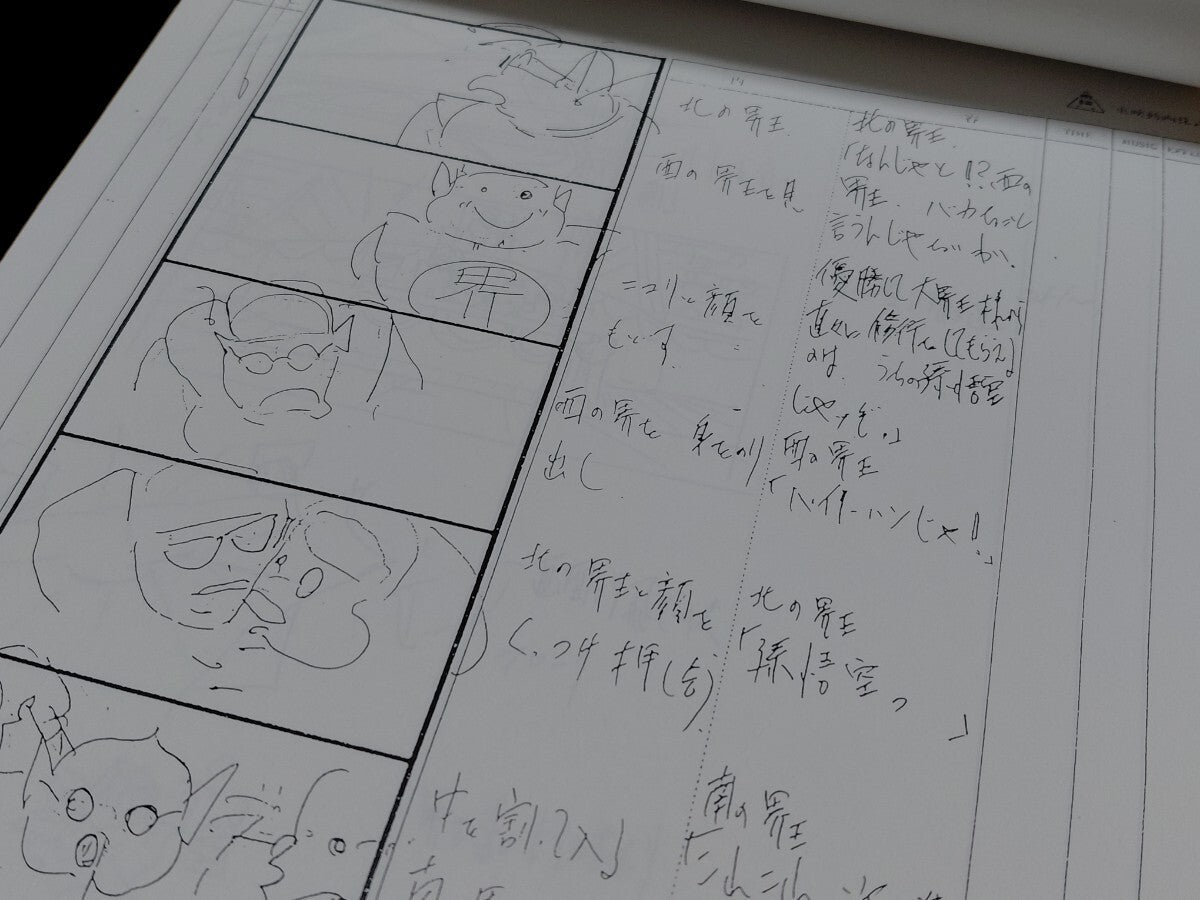 界
北の界王
西の界王を見
ニコリと顔を
もどす
西の界王 身をのり
出し
北の界王と顔を
くっつけ押し合う
中を割って入る
北の界王
「なんじゃと!? 西の
界王、バカも
言うんじゃ
優勝して大界王様から
直々に修行をしてもらえる
のは、うちの孫悟空
じゃぞ。」
西の界王
「パイクーハンじゃ!」
北の界王
「孫悟空っ
」
南の界王
TIME
MUSIC